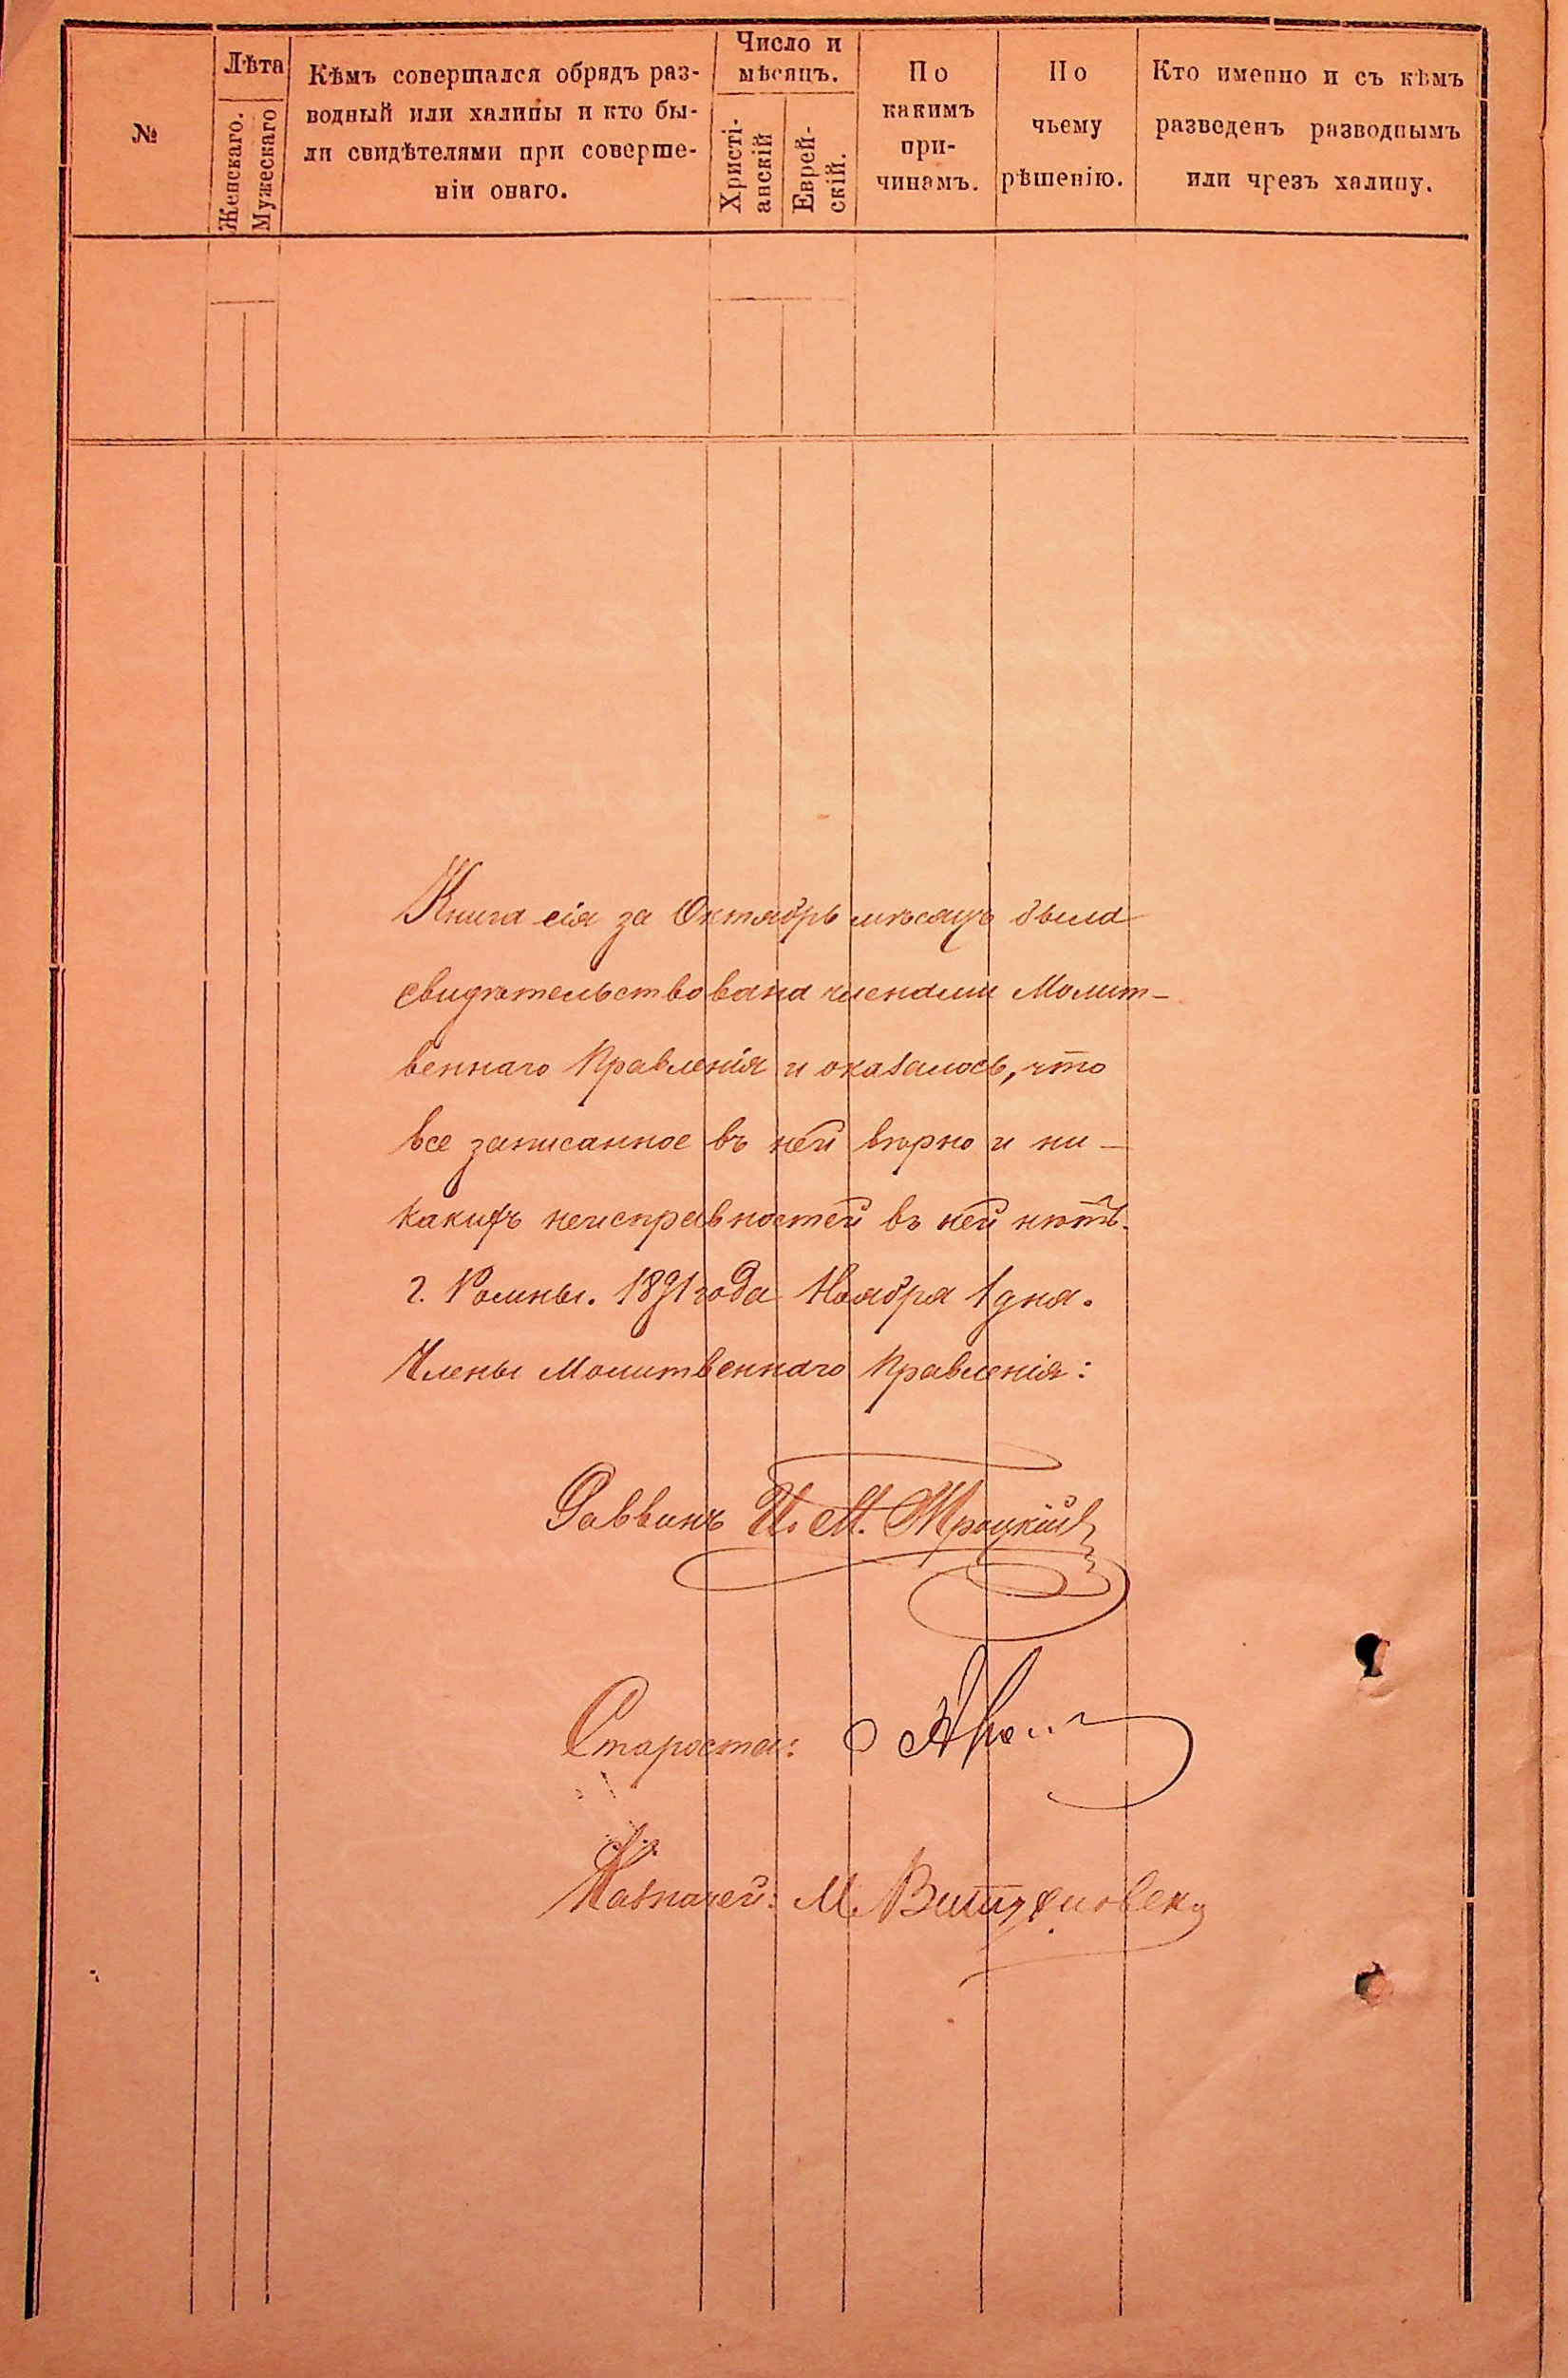 №
Лѣта
Женскаго.
Мужескаго
Кѣмъ совершался обрядъ раз-
водный или халицы и кто бы-
ли свидѣтелями при соверше-
ніи онаго.
Число и
мѣсяцъ.
Христі-
анскій
Еврей-
скій.
По
какимъ
при-
чинамъ.
По
чьему
рѣшенію.
Кто именно и съ кѣмъ
разведенъ разводнымъ
или чрезъ халицу.
Книга сія за Октябрь мѣсяцъ была
свидѣтельствована членами Молит-
веннаго Правленія и оказалось, что
все записанное въ ней вѣрно и ни-
какихъ неисправностей въ ней нѣтъ.
г. Ромны. 1891 года Ноября 1 дня.
Члены Молитвеннаго Правленія:
Раввинъ И. М. Троцкій
Староста:
Казначей: М